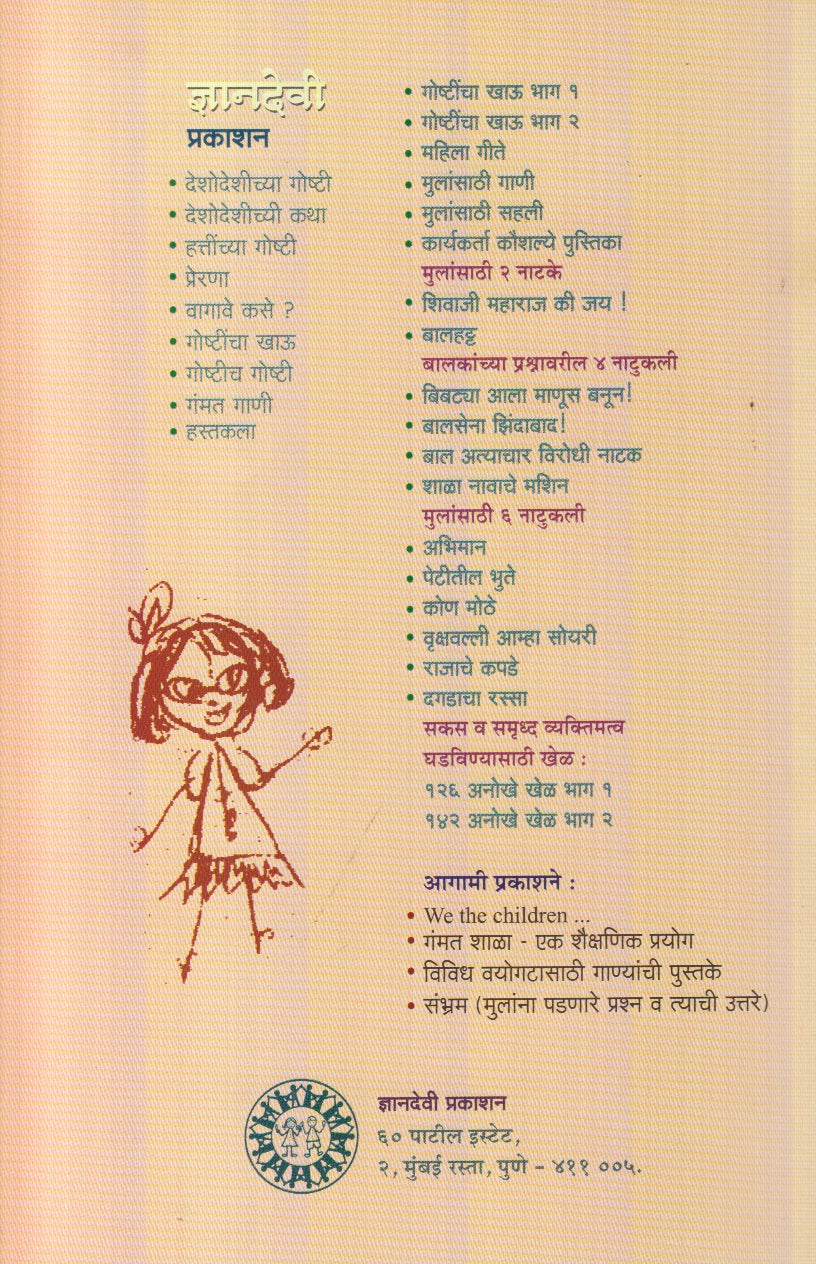 ज्ञानदेवी
प्रकाशन
• देशोदेशीच्या गोष्टी
• देशोदेशीच्यी कथा
• हत्तींच्या गोष्टी
• प्रेरणा
• वागावे कसे ?
• गोष्टींचा खाऊ
• गोष्टीच गोष्टी
• गंमत गाणी
• हस्तकला
• गोष्टींचा खाऊ भाग १
• गोष्टींचा खाऊ भाग २
• महिला गीते
• मुलांसाठी गाणी
• मुलांसाठी सहली
• कार्यकर्ता कौशल्ये पुस्तिका
मुलांसाठी २ नाटके
• शिवाजी महाराज की जय !
• बालहट्ट
बालकांच्या प्रश्नावरील ४ नाटुकली
• बिबट्या आला माणूस बनून!
• बालसेना झिंदाबाद!
• बाल अत्याचार विरोधी नाटक
• शाळा नावाचे मशिन
मुलांसाठी ६ नाटुकली
• अभिमान
• पेटीतील भुते
• कोण मोठे
• वृक्षवल्ली आम्हा सोयरी
• राजाचे कपडे
• दगडाचा रस्सा
सकस व समृध्द व्यक्तिमत्व
घडविण्यासाठी खेळ :
१२६ अनोखे खेळ भाग १
१४२ अनोखे खेळ भाग २
आगामी प्रकाशने :
• We the children ...
• गंमत शाळा - एक शैक्षणिक प्रयोग
• विविध वयोगटासाठी गाण्यांची पुस्तके
• संभ्रम (मुलांना पडणारे प्रश्न व त्याची उत्तरे)
ज्ञानदेवी प्रकाशन
६० पाटील इस्टेट,
२, मुंबई रस्ता, पुणे – ४११ ००५.